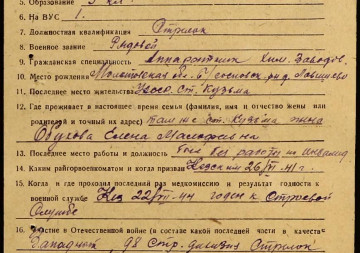 5. Образование 3 кл.
6. На ВУС 1.
7. Должностная квалификация Стрелок
8. Военное звание Рядовой
9. Гражданская специальность Аппаратчик Хим. Заводов.
10. Место рождения Молотовская обл.
11. Последнее место жительства ст. Кузьма
12. Где проживает в настоящее время семья (фамилия, имя и отчество жены или
родителя и точный их адрес) там же ст. Кузьма жена
Обухова Елена
13. Последнее место работы и должность был без работы по инвалид.
14. Каким райгорвоенкоматом и когда призван 26/VII-41 г.
15. Когда и где проходил последний раз медкомиссию и результат годности к
военной службе 22/VII-44 годен к Строевой
Службе
16. Участие в Отечественной войне (в составе какой последней части в качеств
Западный 98 Стр. дивизия Стрелок